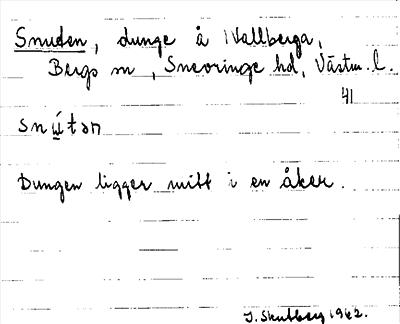 Snuden, dunge å Wallberga,
Bergs sn, Snevringe hd, Västm. l.
41
snú̱tən
Dungen ligger mitt i en åker.
J. Skutberg 1962.